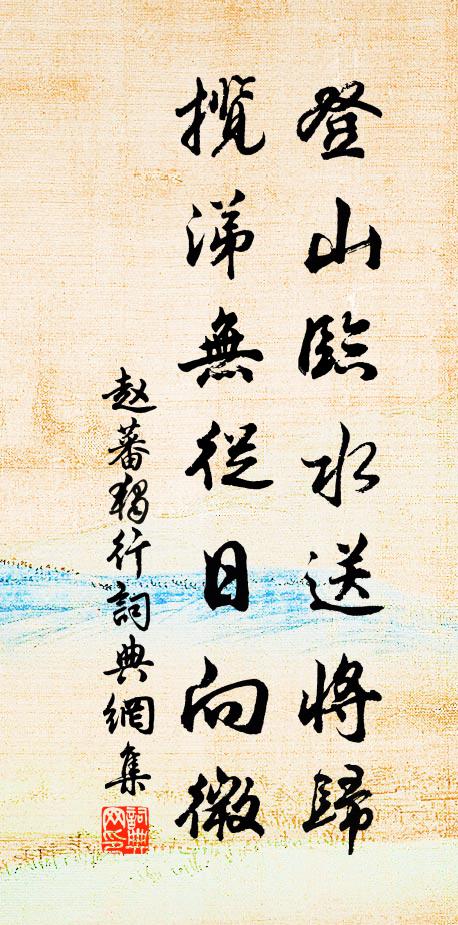 登山臨水送將歸
攬涕無從日向微
赵蕃獨行詞典網集
詞典网印